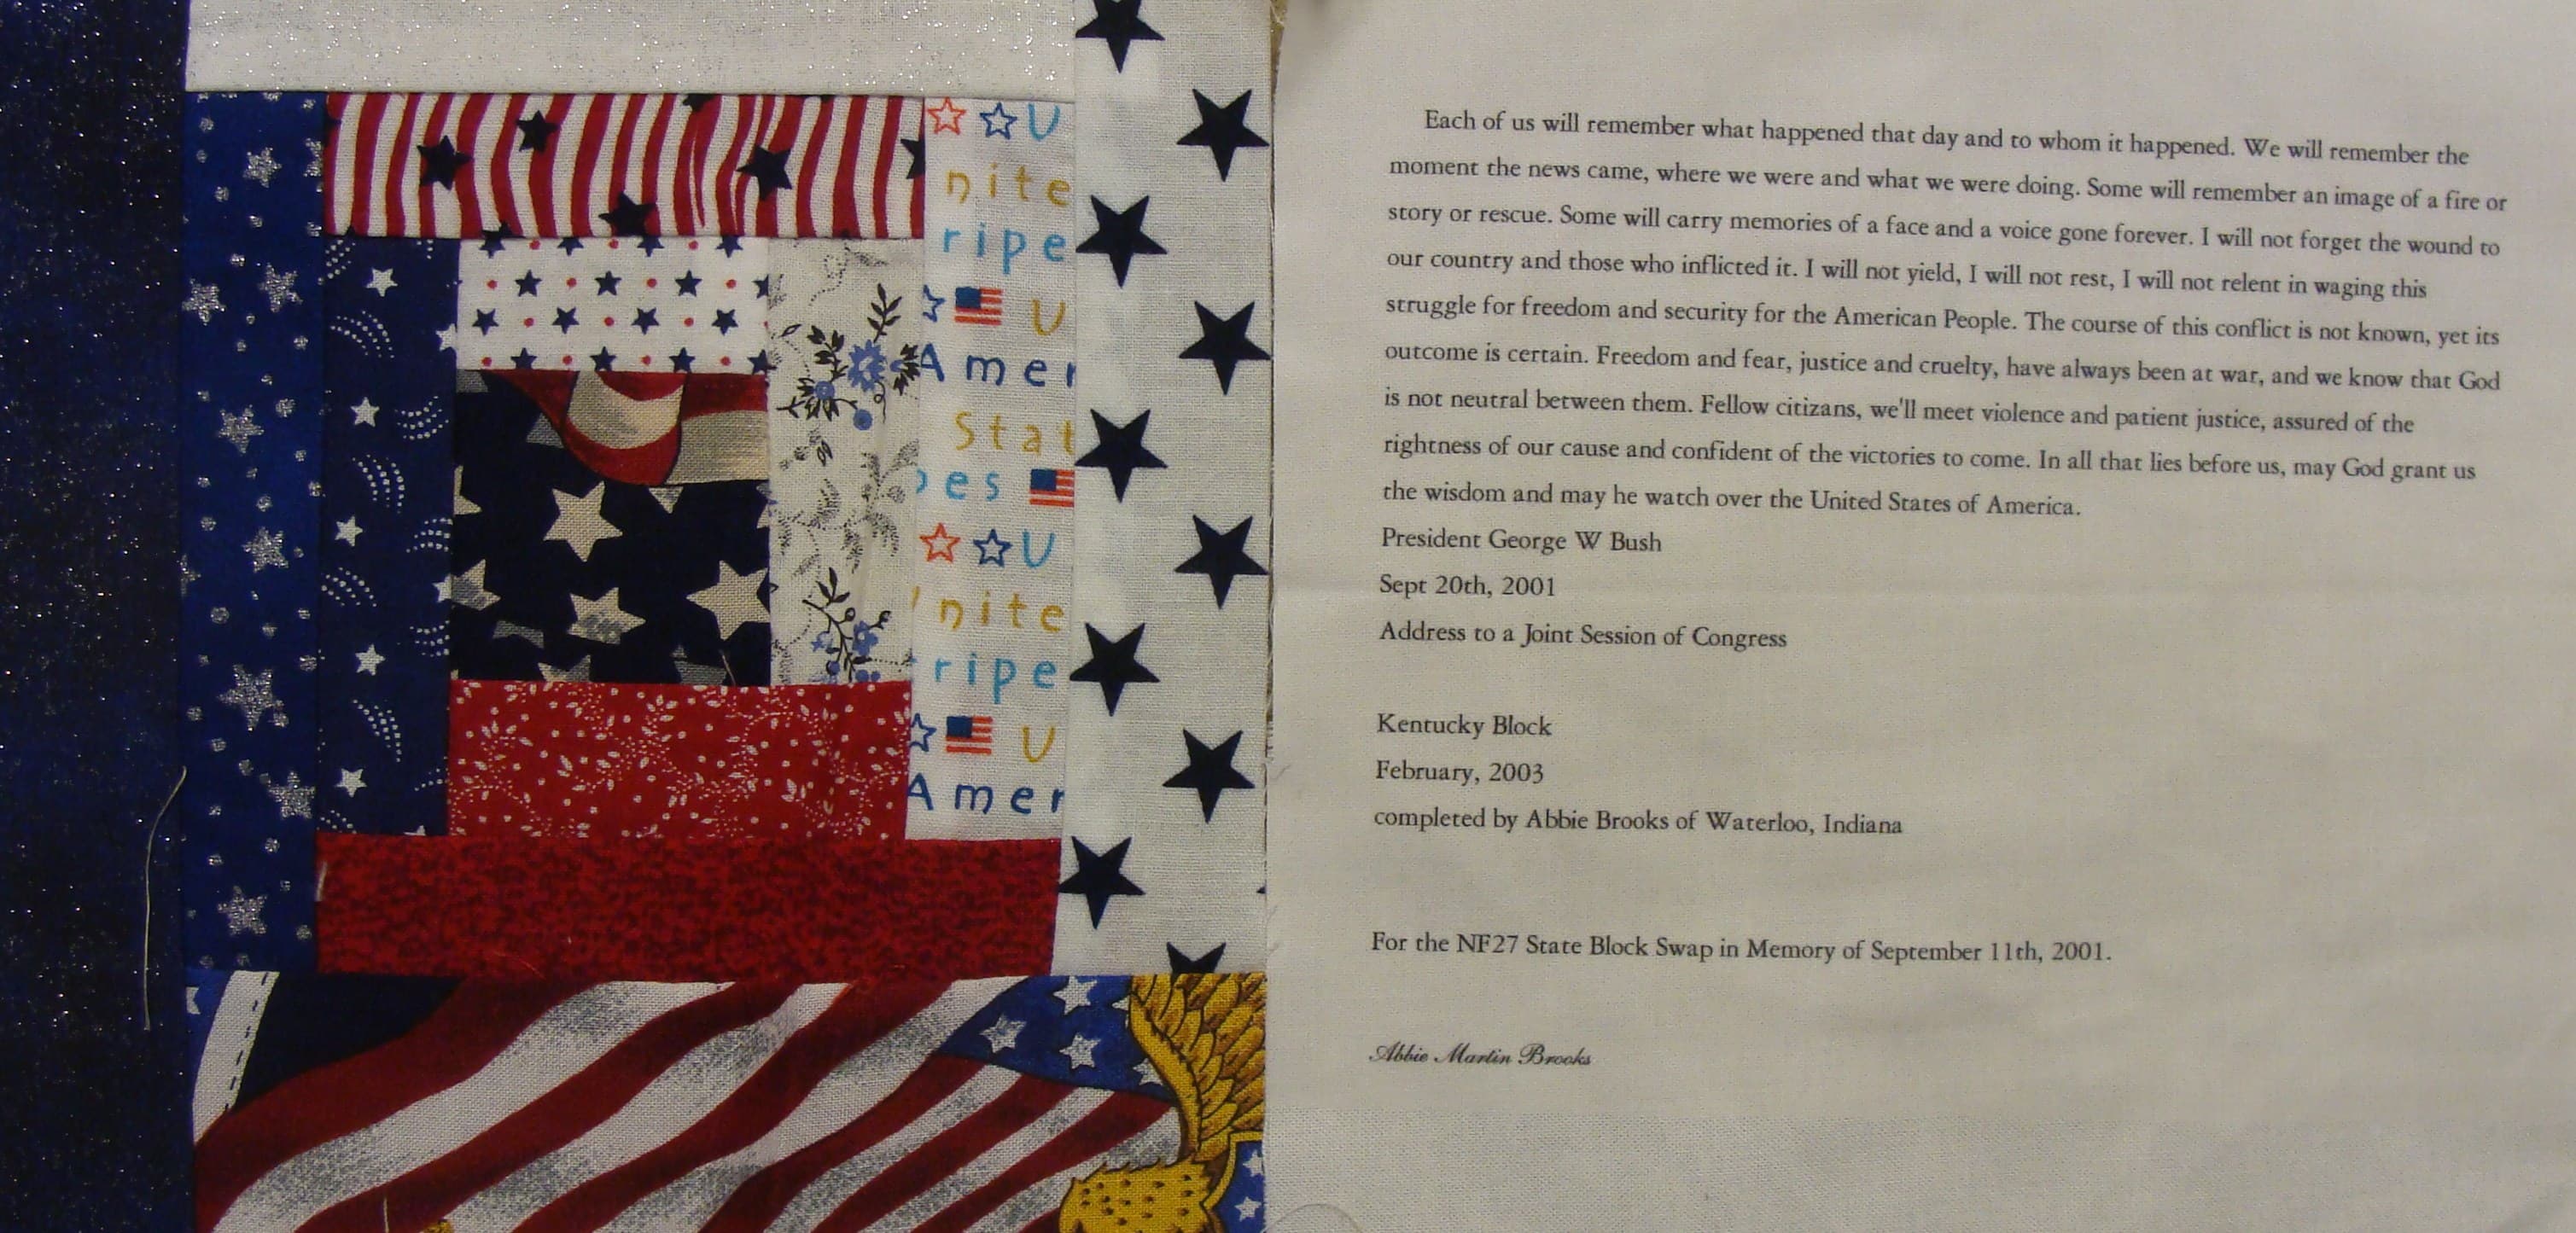 U
nite
ripe
U
Amer
Stat
pes
U
nite
ripe
U
Amer
Each of us will remember what happened that day and to whom it happened. We will remember the
moment the news came, where we were and what we were doing. Some will remember an image of a fire or
story or rescue. Some will carry memories of a face and a voice gone forever. I will not forget the wound to
our country and those who inflicted it. I will not yield, I will not rest, I will not relent in waging this
struggle for freedom and security for the American People. The course of this conflict is not known, yet its
outcome is certain. Freedom and fear, justice and cruelty, have always been at war, and we know that God
is not neutral between them. Fellow citizans, we'll meet violence and patient justice, assured of the
rightness of our cause and confident of the victories to come. In all that lies before us, may God grant us
the wisdom and may he watch over the United States of America.
President George W Bush
Sept 20th, 2001
Address to a Joint Session of Congress
Kentucky Block
February, 2003
completed by Abbie Brooks of Waterloo, Indiana
For the NF27 State Block Swap in Memory of September 11th, 2001.
Abbie Martin Brooks